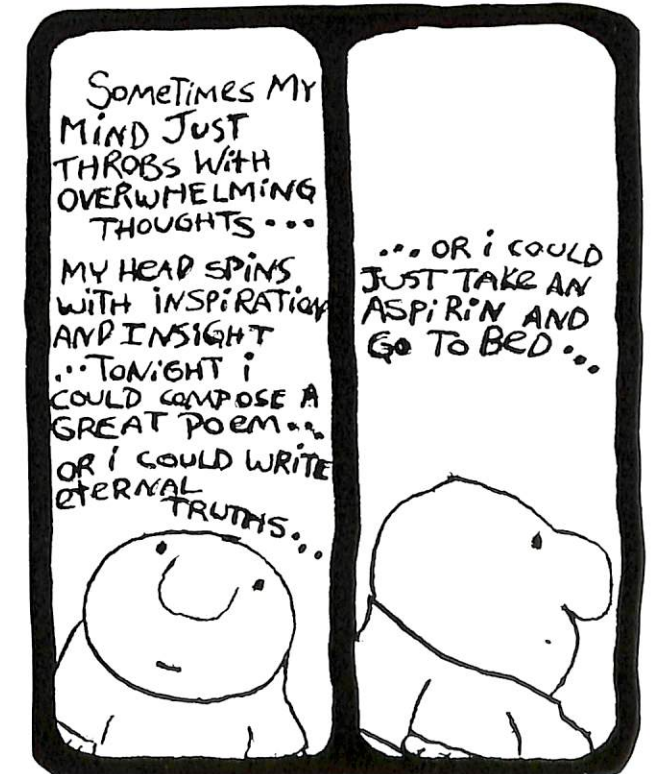 SOMETIMES MY
MIND JUST
THROBS WITH
OVERWHELMING
THOUGHTS...
MY HEAD SPINS
WITH INSPIRATION
AND INSIGHT
...TONIGHT I
COULD COMPOSE A
GREAT POEM...
OR I COULD WRITE
ETERNAL
TRUTHS...
...OR I COULD
JUST TAKE AN
ASPIRIN AND
GO TO BED...